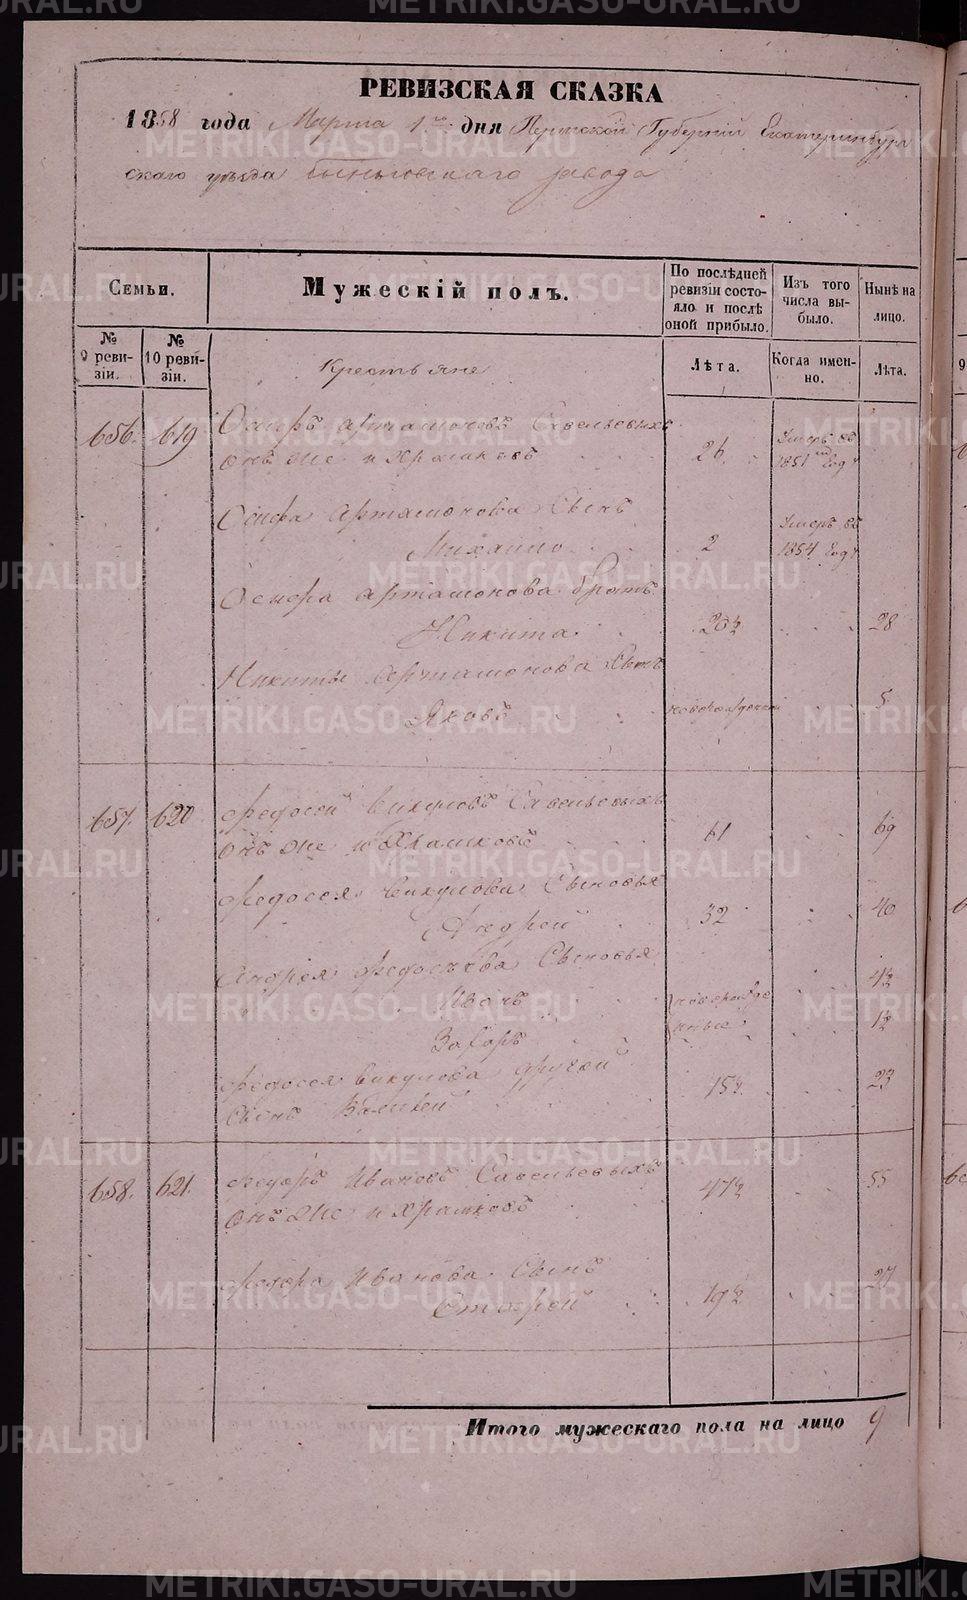 РЕВИЗСКАЯ СКАЗКА
1858 года Марта 1го дня Пермской Губернии Екатеринбург
скаго уезда Быньговскаго завода
Семьи.
Мужескій полъ.
По послѣдней ревизіи состояло и послѣ оной прибыло.
Изъ того числа выбыло.
Нынѣ на лицо.
№ 9 ревизіи.
№ 10 ревизіи.
Лѣта.
Когда именно.
Лѣта.
Крестьяне
656. 619 Осипъ Артамоновъ Савельевыхъ
онъ же и Храмковъ 26. Умеръ въ 1851м году
Осипа Артамонова Сынъ
Михаило 2 Умеръ въ 1854 году
Осипа Артамонова братъ
Никита 20½ 28
Никиты Артамонова Сынъ
Яковъ новорожденный 5
657. 620 Федосей Викуловъ Савельевыхъ
Онъ же и Храмковъ 61 69
Федосея Викулова Сыновья
Андрей 32 40
Андрея Федосѣева Сыновья
Иванъ новорожде 4½
Захаръ нные 1½
Федосея Викулова другой
Сынъ 15½ 23
658. 621. Федоръ Ивановъ Савельевыхъ
Онъ же и Храмковъ 47½ 55
Федора Иванова Сынъ
19½ 27
Итого мужескаго пола на лицо 9
METRIKI.GASO-URAL.RU